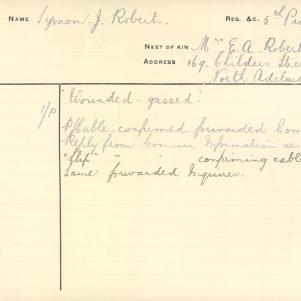 NAME Symon. J. Roberts. REG. &C. 5th Pi
NEXT OF KIN Mrs E. A. Robert
ADDRESS 169. Childers Stre
North Adelai
1/P "Wounded - gassed".
P/Cable. confirmed forwarded Com
Reply from Commn. Information se
"Slip" " " confirming cable
Same forwarded Inquirer.